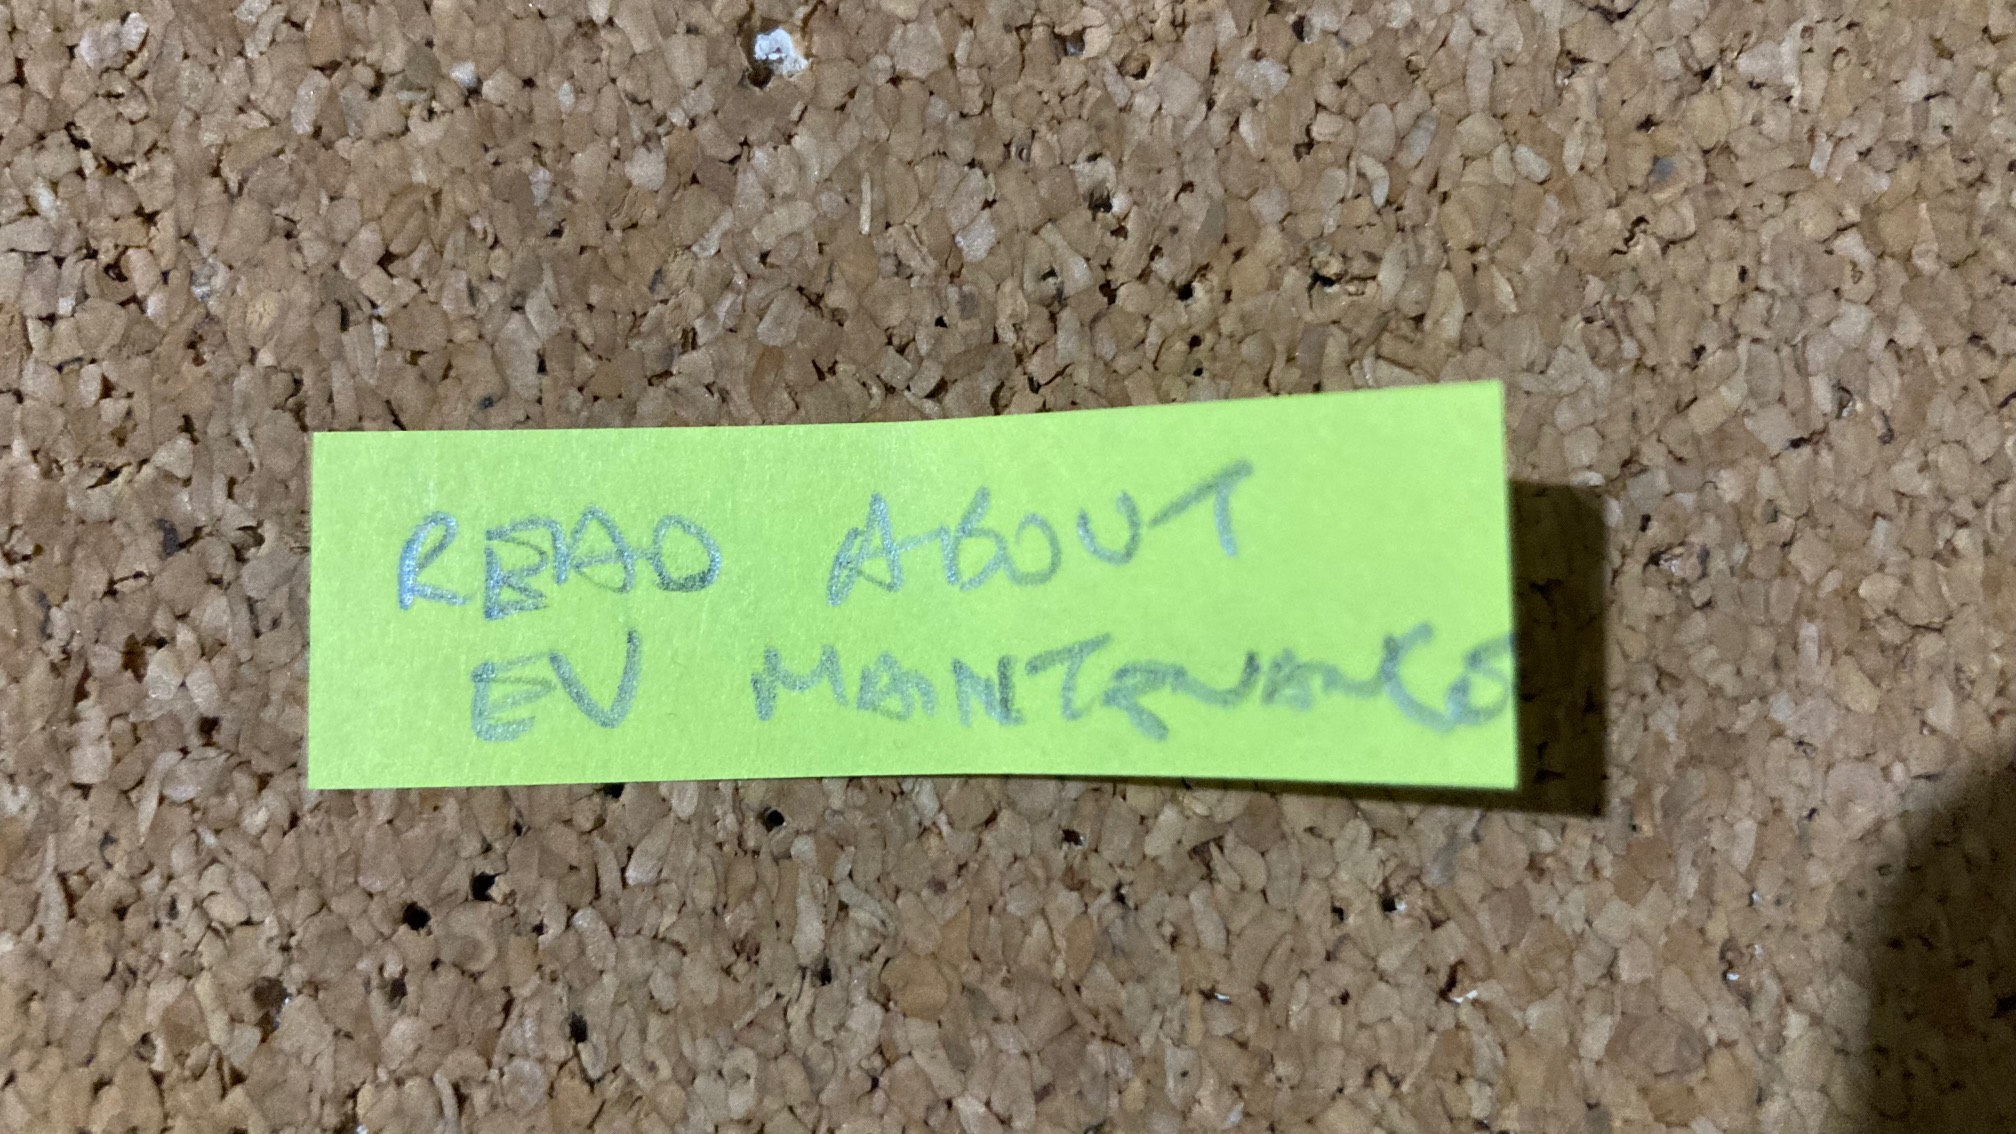 READ ABOUT
EV MAINTENANCE